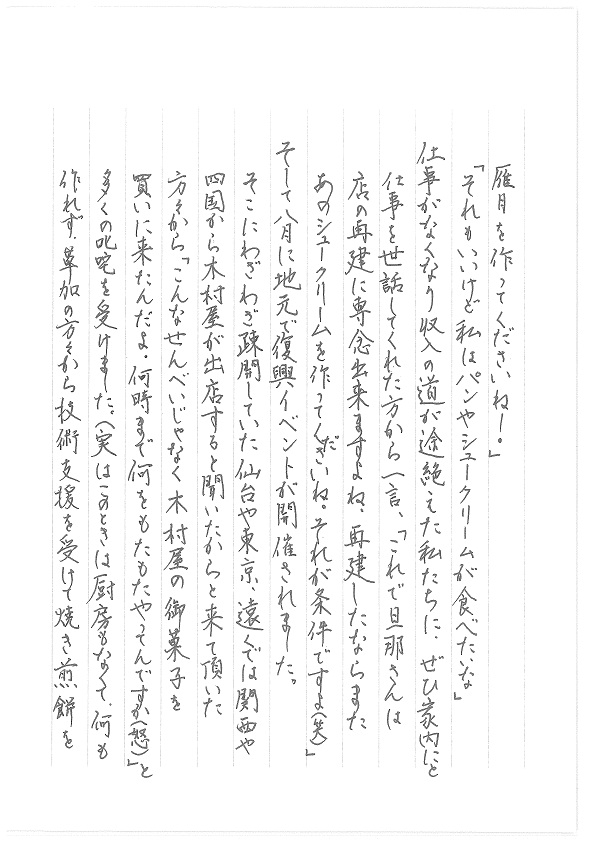 雁月を作ってくださいねー。」
「それもいいけど私はパンやシュークリームが食べたいな」
仕事がなくなり収入の道が途絶えた私たちに、ぜひ家内にと
仕事を世話してくれた方から一言、「これで旦那さんは
店の再建に専念出来ますよね、再建したならまた
あのシュークリームを作ってくださいね。それが条件ですよ(笑)」
そして八月に地元で復興イベントが開催されました。
そこにわざわざ疎開していた仙台や東京、遠くでは関西や
四国から木村屋が出店すると聞いたからと来て頂いた
方々から「こんなせんべいじゃなく木村屋の御菓子を
買いに来たんだよ。何時まで何をもたもたやってんですか(怒)」と
多くの叱咤を受けました。(実はこのときは厨房もなくて、何も
作れず、草加の方々から技術支援を受けて焼き煎餅を